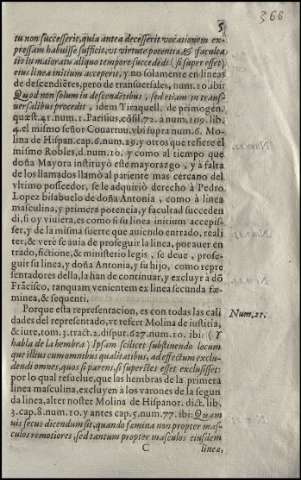 5
366
tu non successerit, quia antea decesserit vocationem ex-
pressam habuisse sufficit, vt virtute potentiæ, & faculta
tis iu maioratu aliquo tempore succededi (si super esset)
eius linea initium acceperit, y no solamente en lineas
de descendiētes, pero de transuersales, num. 10. ibi:
Quod non solum in descendētibus, sed etiam in trans-
uersalibus procedit, idem Tiraquell. de primogen.
quæst. 41. num. 1. Parisius, cōsil. 72. a num. 109. lib.
4. el mismo señor Couarruu. vbi supra num. 6. Mo-
lina de Hispan. cap. 6. num. 29. y otros que refiere el
mismo Robles, d. num. 10. y como al tiempo que
doña Mayora instituyò este mayorazgo, y à falta
de los llamados llamò al pariente mas cercano del
vltimo posseedor, se le adquiriò derecho à Pedro
Lopez bisabuelo de doña Antonia, como à linea
masculina, y primera potencia, y facultad succeden
di, si oy viuiera, es como si su linea initium accepis-
set, y de la misma suerte que auiendo entrado, reali
ter, & vere se auia de proseguir la linea, por auer en
trado, fictione, & ministerio legis, se deue, prose-
guir su linea, y doña Antonia, y su hijo, como repre
sentadores della, la han de continuar, y excluir à dō
Frācisco, tanquam venientem ex linea secunda fæ-
minea, & sequenti.
Porque esta representacion, es con todas las cali
dades del representado, vt refert Molina de iustitia,
& iure, tom. 3. tract. 2. disput. 627. num. 10. ibi: (Y
habla de la hembra) Ipsam scilicet substinendo locum
que illius cum omnibus qualitatibus, ad effectum exclu-
dendi omnes, quos si parens, si superstes esset exclusisset:
por lo qual resuelue, que las hembras de la primera
linea masculina, excluyen à los varones de la segun
da linea, alter noster Molina de Hispanor. dict. lib,
3. cap. 8. num. 10. y antes cap. 5. num. 77. ibi: Quam
vis secus dicendum sit, quando fæmina non propter mas-
culos remotiores, sed tantum propter masculos eiusdem
Num, 21.
C
linea,